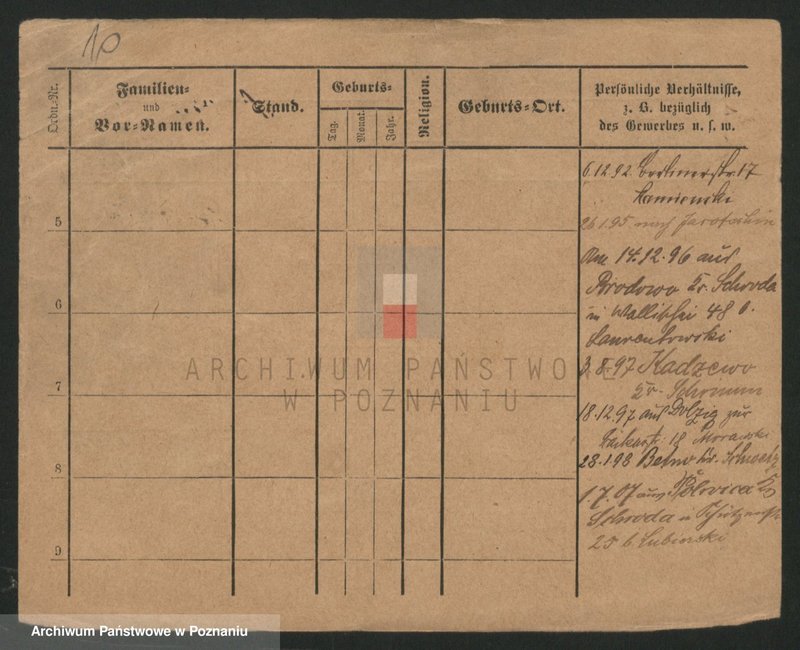 10
Ordn.-Nr.
Familien-
und
Vor-Namen.
Stand.
Geburts-
Tag.
Monat.
Jahr.
Religion.
Geburts-Ort.
Persönliche Verhältnisse,
z. B. bezüglich
des Gewerbes u. s. w.
6.12.92 Berlinerstr. 17
Kamienski
5
26.1.95 nach Jarotschin
Am 14.12.96 aus
Brodowo Kr. Schroda
6
in Wallischei 48 b.
Laurentowski
3.8.97 Kadzewo
7
Kr. Schrimm
18.12.97 aus Dolzig zur
18 Morawski
8
28.1.98 Kr.
1.7.07 aus Kr
Schroda
9
25 b. Lubienski
ARCHIWUM PAŃSTWOWE
W POZNANIU
Archiwum Państwowe w Poznaniu